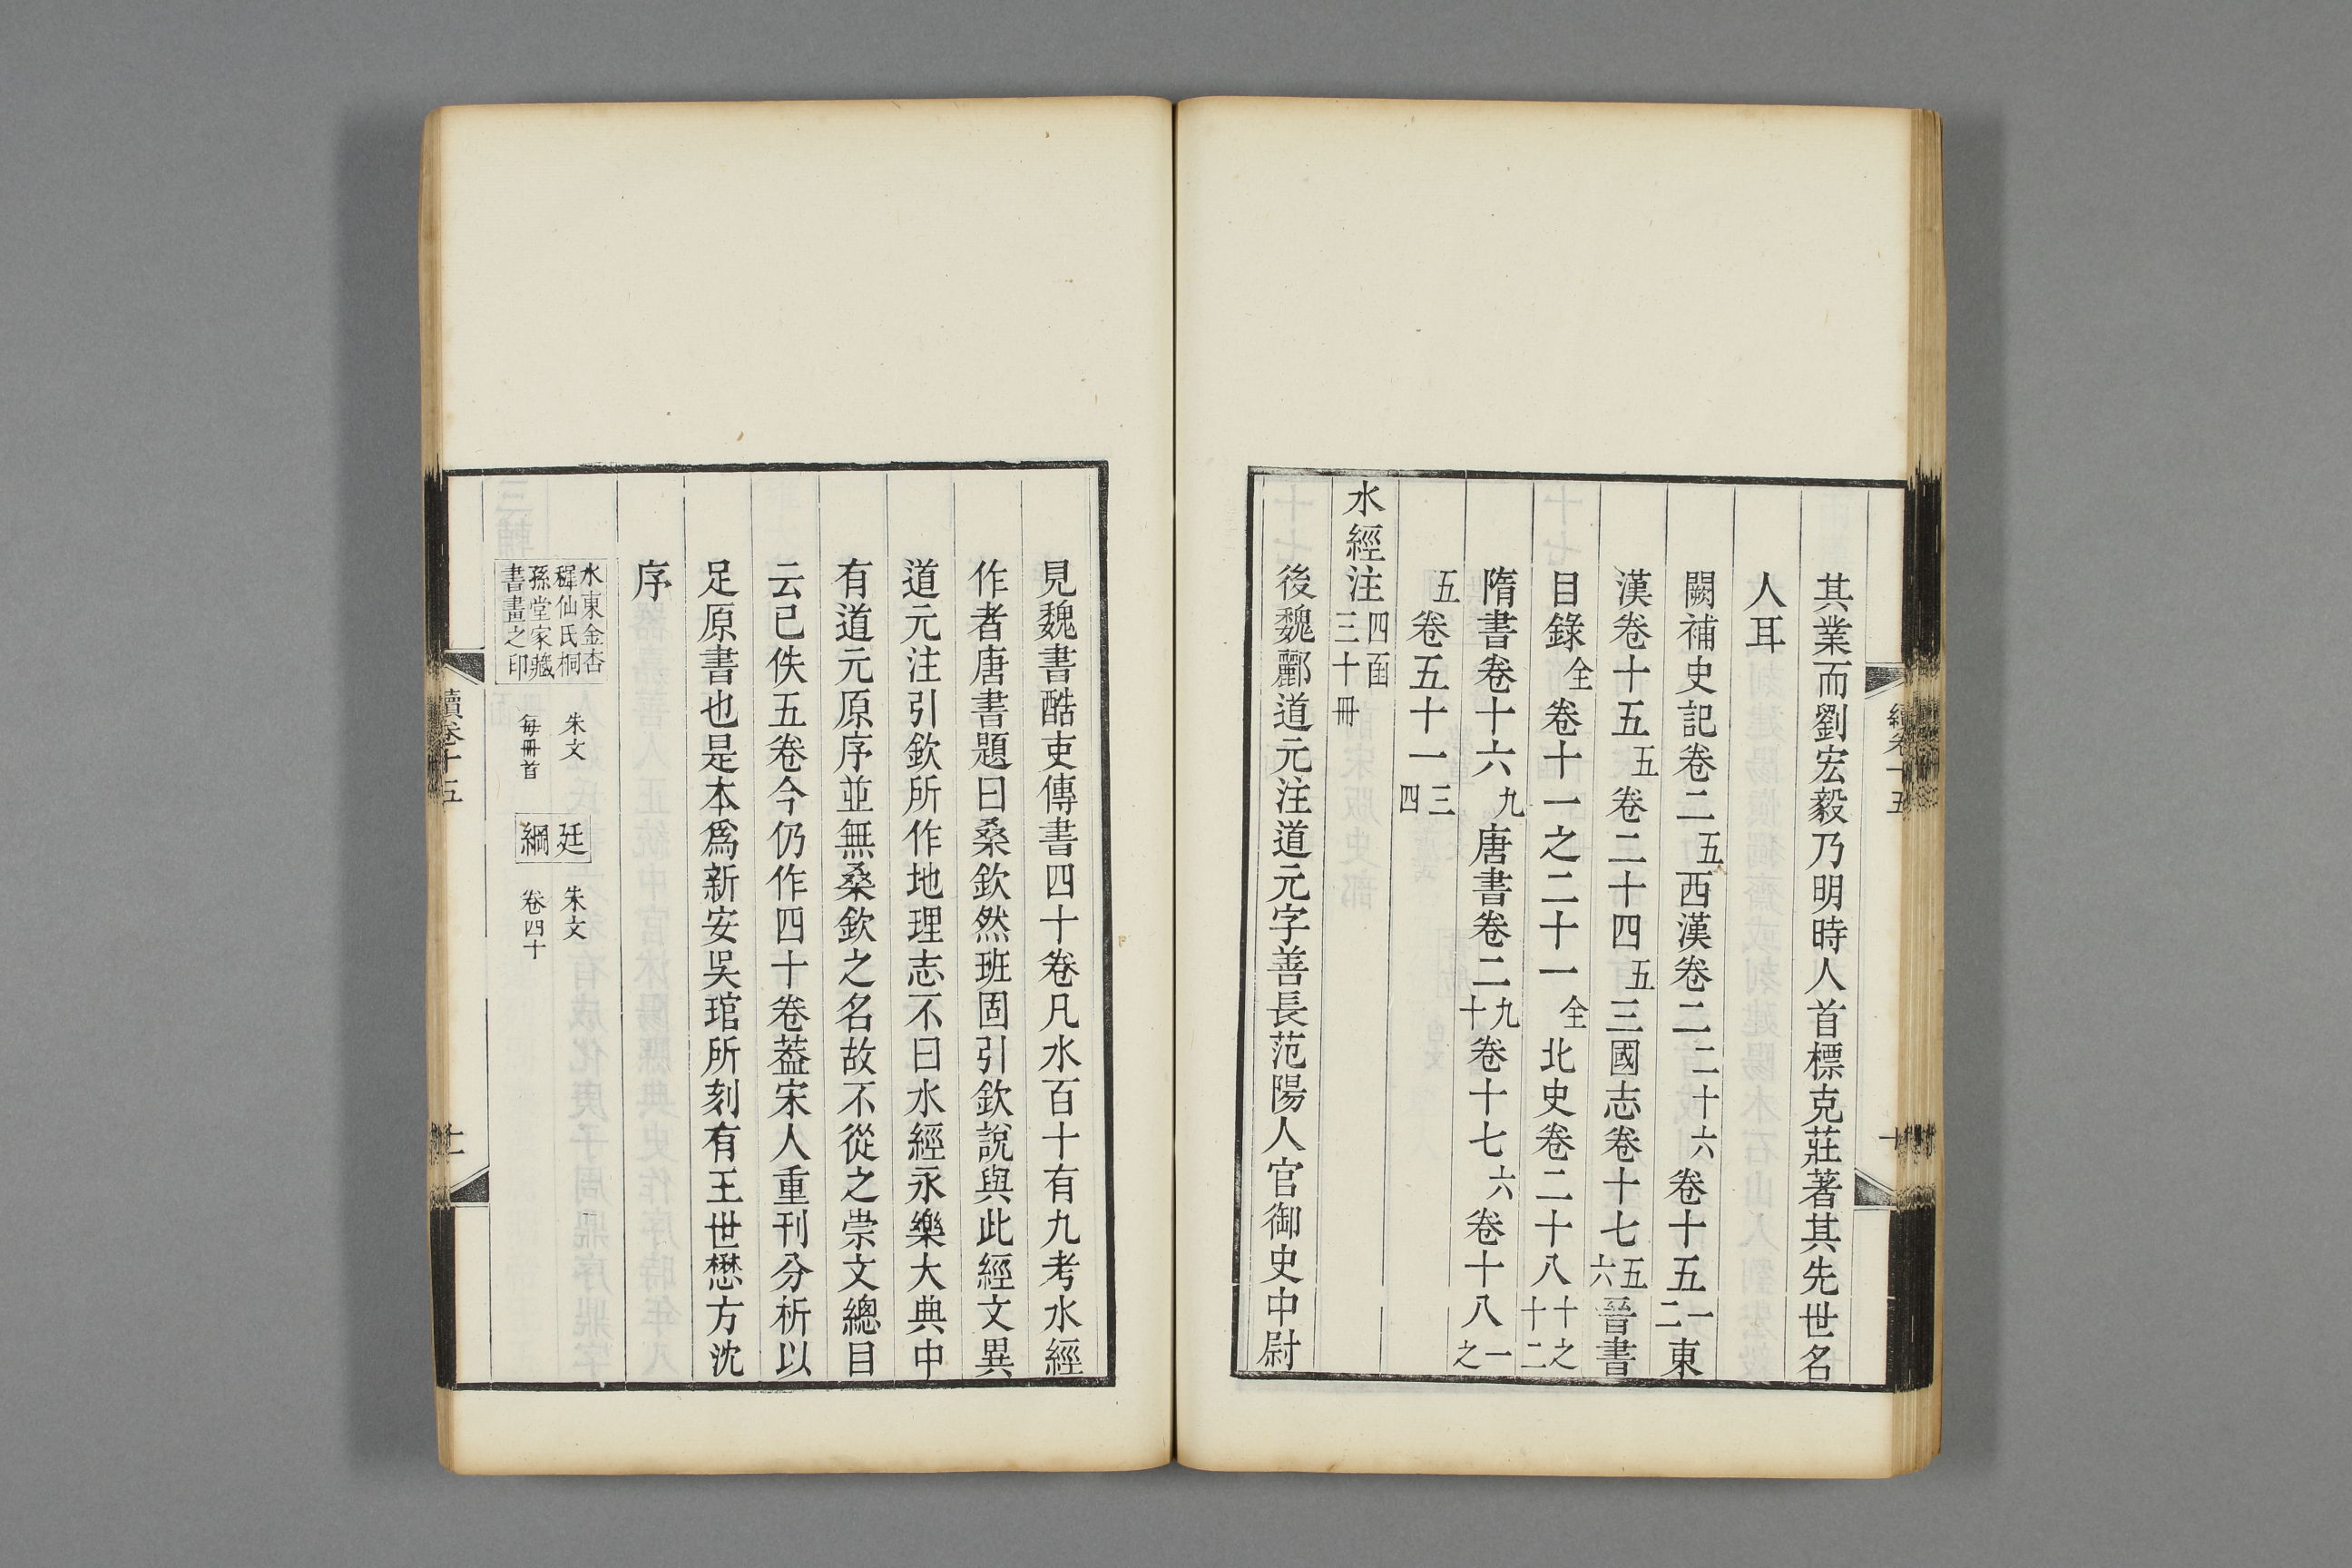 其業而劉宏毅乃明時人首標克莊著其先世名
人耳
闕補史記卷二五西漢卷二二十六卷十五一二東
漢卷十五五卷二十四五三國志卷十七五六晉書
目錄全卷十一之二十一全北史卷二十八十之十二
隋書卷十六九唐書卷二九十卷十七六卷十八一之
五卷五十一三四
水經注四函三十冊
後魏酈道元注道元字善長范陽人官御史中尉
續卷十五
十
見魏書酷吏傳書四十卷凡水百十有九考水經
作者唐書題曰桑欽然班固引欽說與此經文異
道元注引欽所作地理志不曰水經永樂大典中
有道元原序並無桑欽之名故不從之崇文總目
云已佚五卷今仍作四十卷葢宋人重刊分析以
足原書也是本為新安吳琯所刻有王世懋方沈
序
水東金杏
穉仙氏桐
孫堂家藏
書畫之印
朱文
每冊首
廷
綱
朱文
卷四十
續卷十五